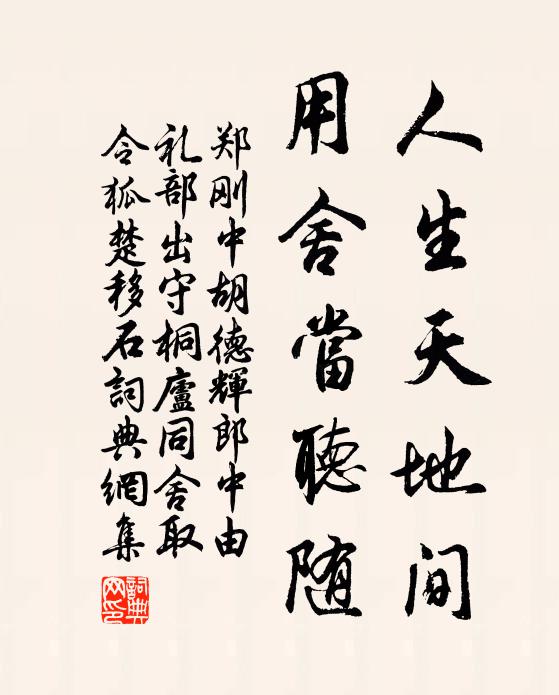 人生天地间
用舍當聽随
郑刚中胡德輝郎中由
礼部出守桐廬同舍取
令狐楚移石詞典網集
詞典
网印